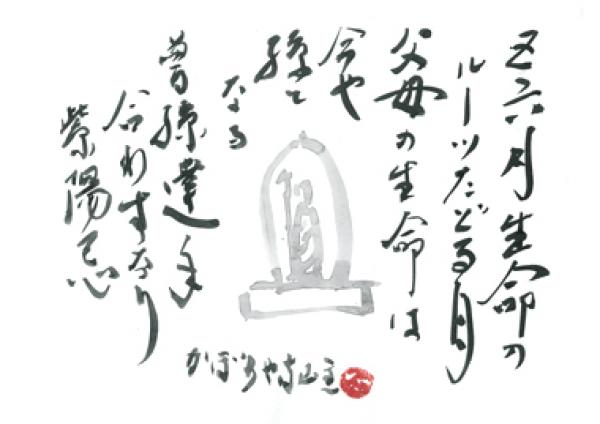 五六月生命の
ルーツたどる月
父母の生命は
今や
孫と
なる
曽孫達手
合わすなり
紫陽忌
かぼちゃ寺山主